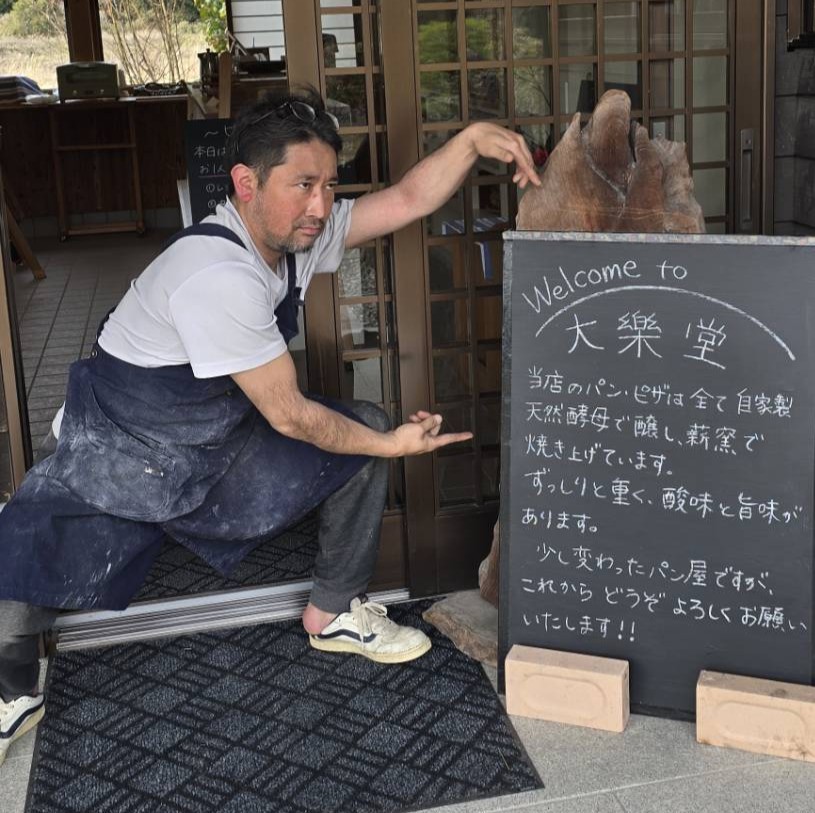 本日は
お1人
Welcome to
大樂堂
当店のパン・ピザは全て自家製
天然酵母で醸し、薪窯で
焼き上げています。
ずっしりと重く、酸味と旨味が
あります。
少し変わったパン屋ですが、
これからどうぞよろしくお願い
いたします!!